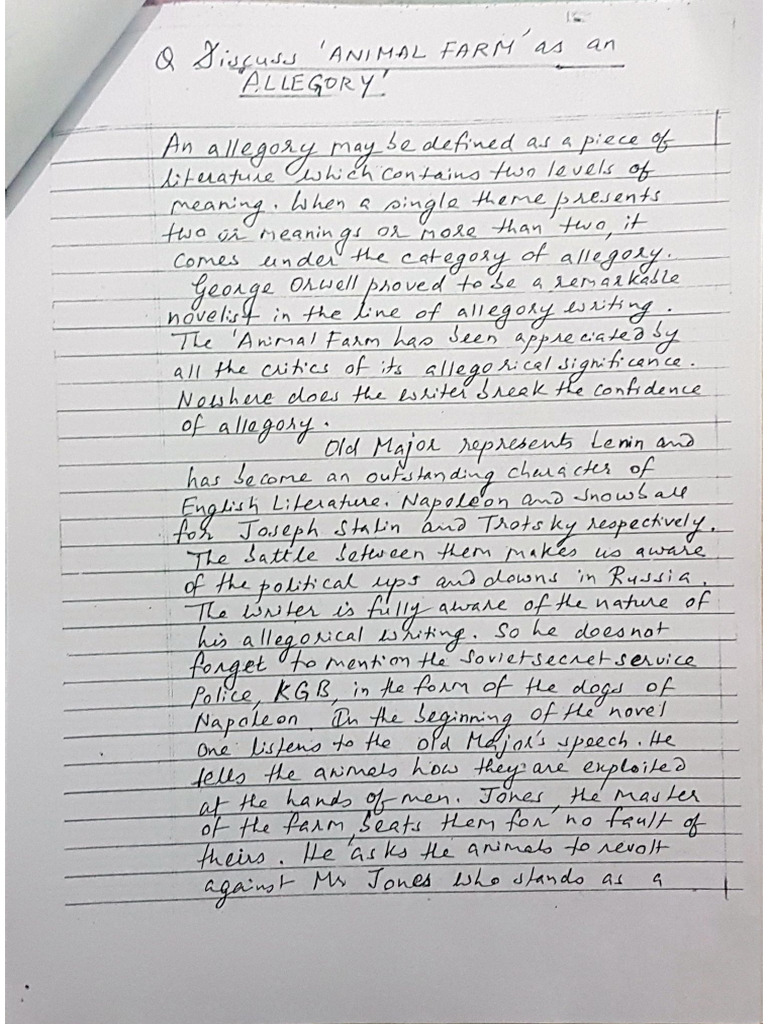 Q Discuss 'ANIMAL FARM' as an
'ALLEGORY'
An allegory may be defined as a piece of
literature which contains two levels of
meaning. When a single theme presents
two or meanings or more than two, it
comes under the category of allegory.
George Orwell proved to be a remarkable
novelist in the line of allegory writing.
The 'Animal Farm has been appreciated by
all the critics of its allegorical significance.
Nowhere does the writer break the confidence
of allegory.
Old Major represents Lenin and
has become an outstanding character of
English Literature. Napoleon and Snowball
for Joseph Stalin and Trotsky respectively.
The battle between them makes us aware
of the political ups and downs in Russia.
The writer is fully aware of the nature of
his allegorical writing. So he does not
forget to mention the Soviet secret service
Police, KGB, in the form of the dogs of
Napoleon. In the beginning of the novel
one listens to the old Major's speech. He
tells the animals how they are exploited
at the hands of men. Jones, the master
of the farm, beats them for no fault of
theirs. He asks the animals to revolt
against Mr Jones who stands as a